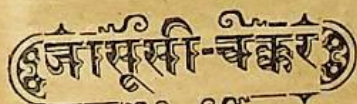 जासूसी-चक्कर